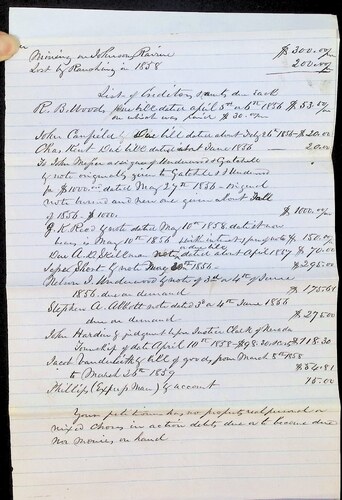 Mining on Johnson Ravine $300.00
Lost by Ranching in 1858 200.00
List of Creditors & am't due each
R. B. Woods due bill dated april 5th or 6th 1856 $53.00
on which was paid $30.00
John Canfield by Due bill dated about July 26th 1856 $20.00
Chas Kent Due bill dated about June 1856 20.00
To John assignee of Underwood & Gatchell
by note originally given to Gatchell & Underwood
for $1000.00 dated May 27th 1856 original
note burned and new one given about Fall
of 1856 - $1000. $1000.00
J. K. Reed by note dated May 10th 1858 debt at now
was in May 10th 1856 with interest $150.00
Due A. D. Skillman note dated about April 1857 $70.00
Short by note May 20th 1856 $295.00
Nelson J. Underwood by note of 3rd or 4th of June
1856 due on demand $175.61
Stephen A. Abbott note dated 3d or 4th June 1856
due on demand $275.00
John Hardin by judgment before Justice Clark of Nevada
Township of date April 10th 1858 - $98.30 $118.30
Jacob Vanderlieth by bill of goods from March 8th 1858
to March 26th 1859 $54.81
Phillips (Express Man) by account 15.00
Your petitioner has no property real personal or
mixed choses in action debts due or to become due
nor monies on hand